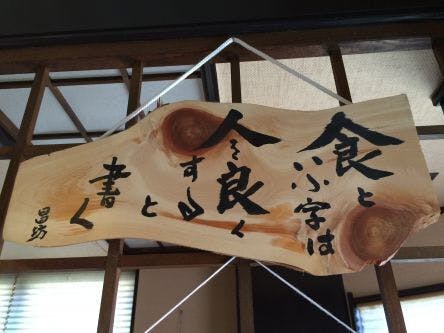 食と
いふ字は
人を良く
すると
書く
昌坊